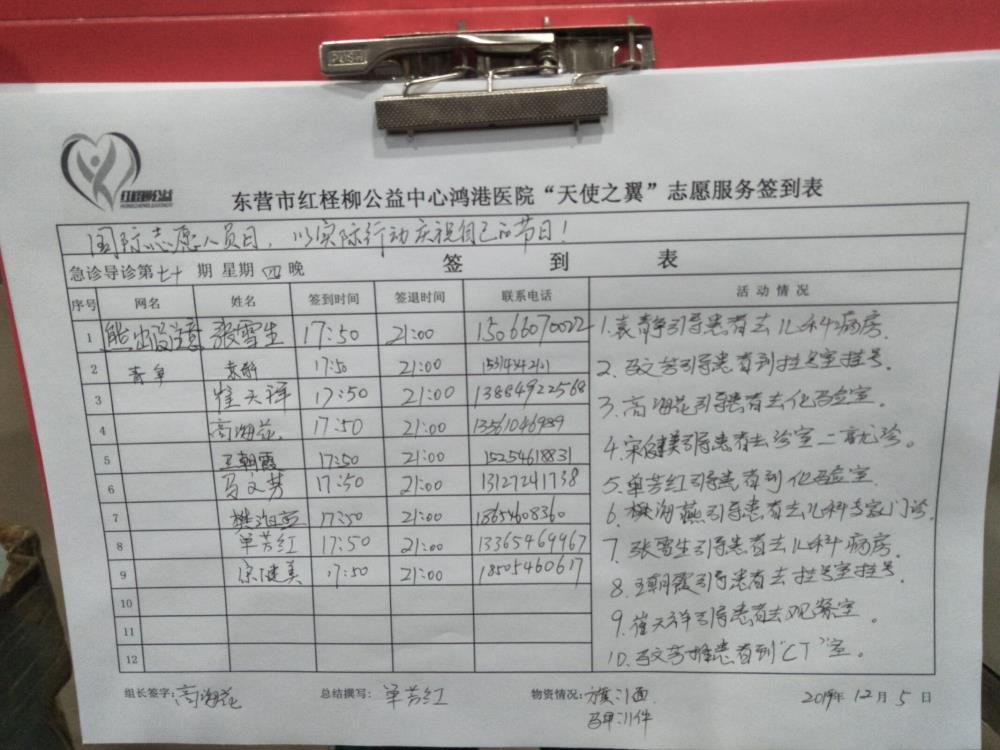 PUSH
红柽柳公益
东营市红柽柳公益中心鸿港医院“天使之翼”志愿服务签到表
国际志愿人员日，以实际行动庆祝自己的节日！
急诊导诊第七十期 星期四晚 签到表
序号 网名 姓名 签到时间 签退时间 联系电话 活动情况
1 熊出没注意 张雪生 17:50 21:00 15066070022
2 青军 袁静 17:50 21:00
3 崔天祥 17:50 21:00 13884922568
4 高海花 17:50 21:00 13561046989
5 王朝霞 17:50 21:00 15254618831
6 马文芳 17:50 21:00 13127241738
7 樊海燕 17:50 21:00 18654608360
8 单芳红 17:50 21:00 13365469967
9 宋健美 17:50 21:00 18505460617
10
11
12
1.袁静引导患者去儿科病房.
2.马文芳引导患者到挂号室挂号.
3.高海花引导患者去化验室.
4.宋健美引导患者去诊室二就诊。
5.单芳红引导患者到化验室.
6.樊海燕引导患者去儿科专家门诊.
7.张雪生引导患者去儿科病房.
8.王朝霞引导患者去挂号室挂号.
9.崔天祥引导患者去观察室。
10.马文芳推患者到“CT”室。
组长签字:高海花 总结撰写:单芳红 物资情况:旗:1面 2019年12月5日
马甲:11件